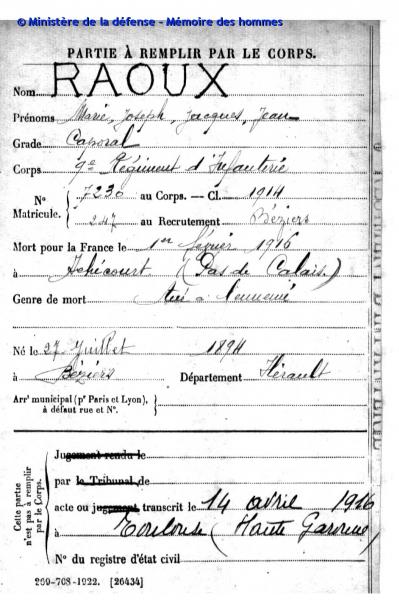 © Ministère de la défense - Mémoire des hommes
PARTIE À REMPLIR PAR LE CORPS.
Nom RAOUX
Prénoms Marie, Joseph, Jacques, Jean
Grade Caporal
Corps 9e Régiment d'Infanterie
N° Matricule. 7230 au Corps. — Cl. 1914
247 au Recrutement Béziers
Mort pour la France le 1er février 1916
à (Pas de Calais.)
Genre de mort Tué à l'ennemi
Né le 27 Juillet 1894
à Béziers Département Hérault
Arrt municipal (pr Paris et Lyon),
à défaut rue et N°.
Cette partie n'est pas à remplir par le Corps.
Jugement rendu le
par le Tribunal de
acte ou jugement transcrit le 14 avril 1916
à Toulouse (Haute Garonne)
N° du registre d'état civil
269-708-1922. [26434]